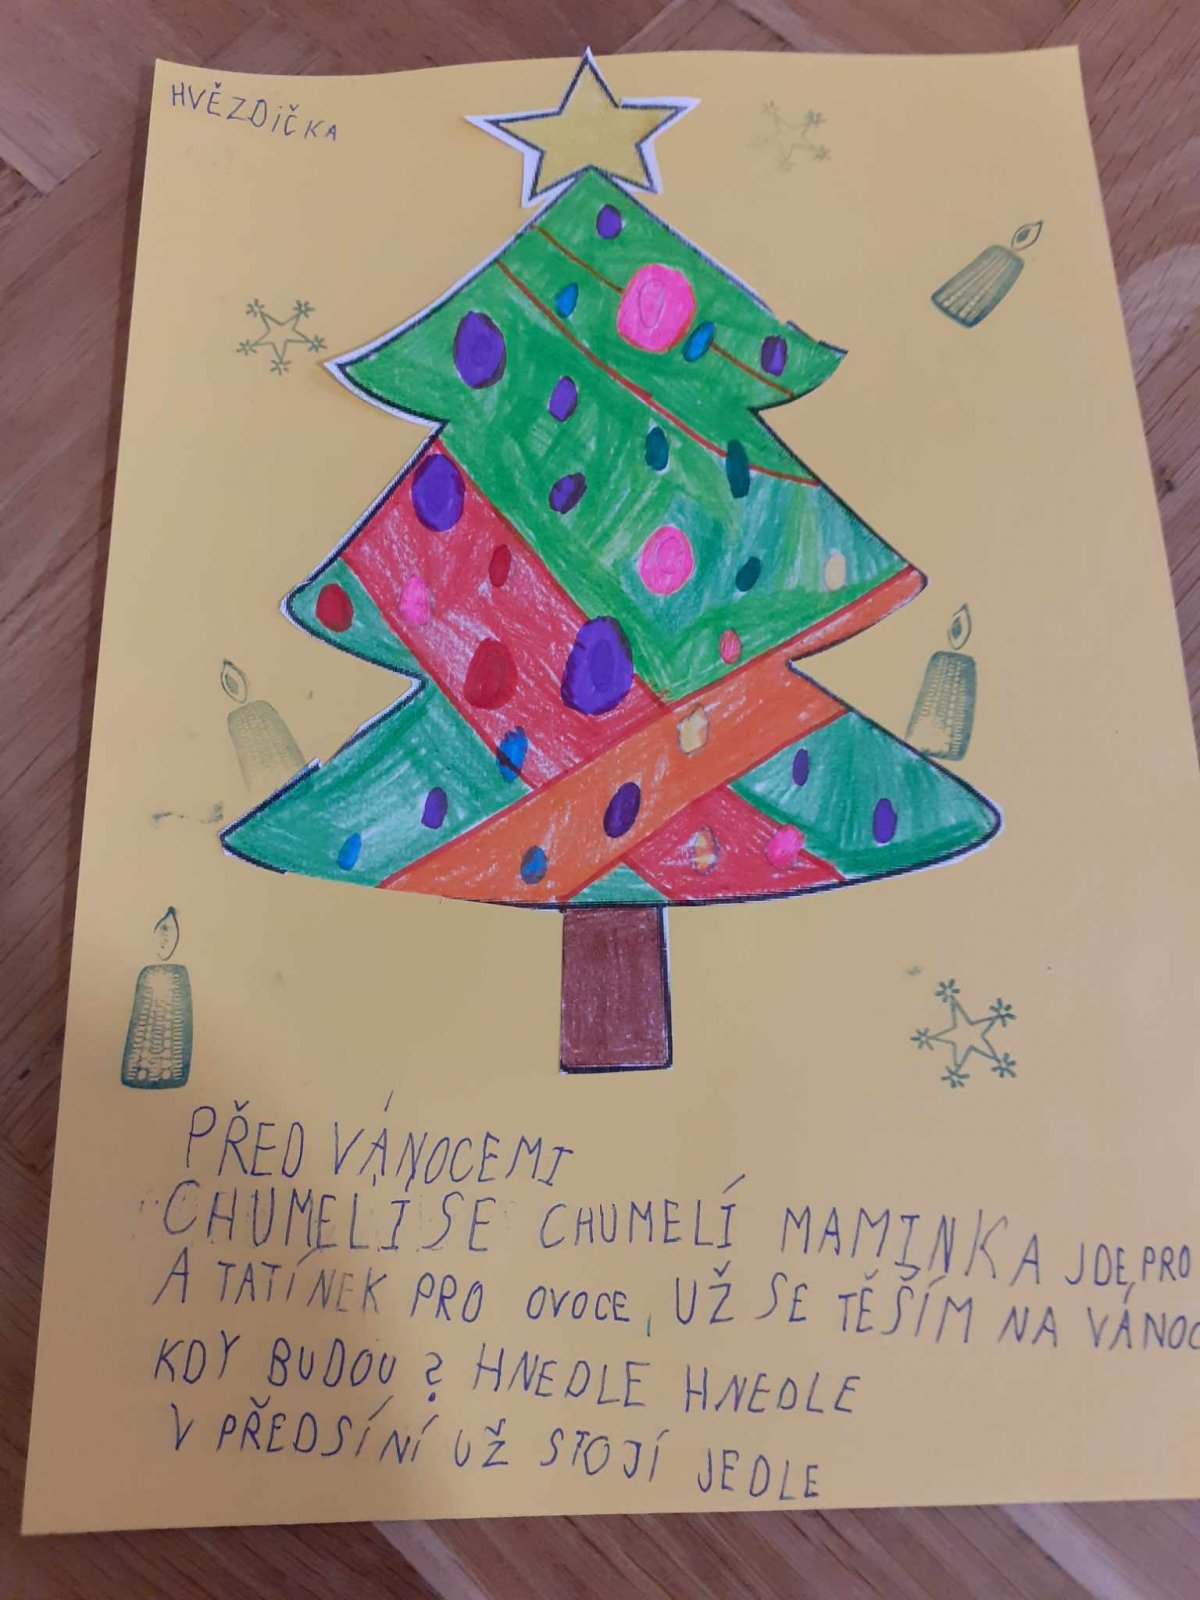 HVĚZDIČKA
PŘED VÁNOCEMI
CHUMELI SE CHUMELÍ MAMINKA JDE PRO
A TATÍNEK PRO OVOCE, UŽ SE TĚŠÍM NA VÁNOC
KDY BUDOU? HNEDLE HNEDLE
V PŘEDSÍNÍ UŽ STOJÍ JEDLE